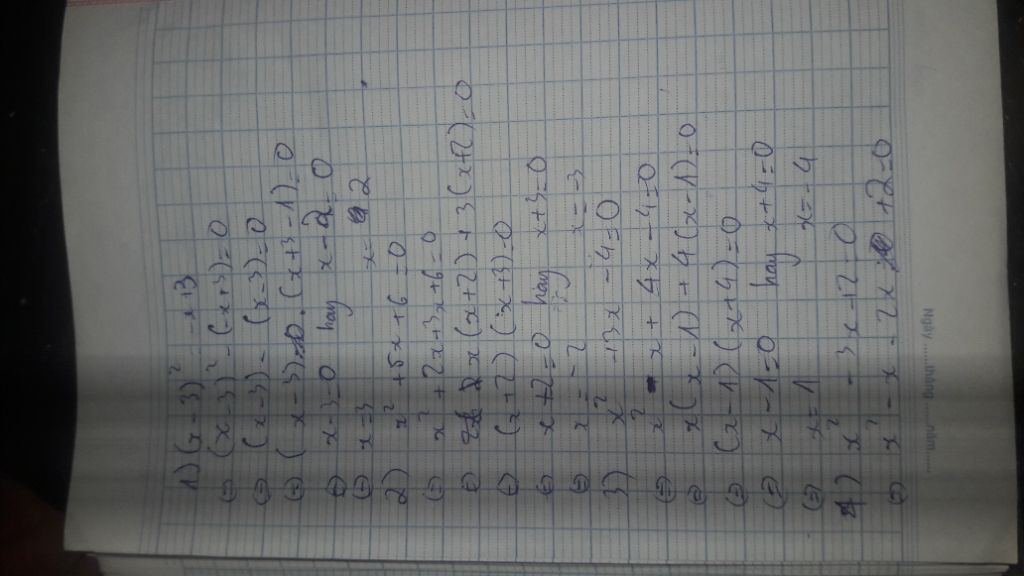 1) (x-3)² = -x+3
⇔ (x-3)² - (-x+3) = 0
⇔ (x-3) - (x-3) = 0
⇔ (x-3) . (x+3-1) = 0
⇔ x-3=0 hay x-2=0
⇔ x=3 x= 2
2) x² +5x+6=0
⇔ x² +2x+3x+6=0
⇔ x(x+2)+3(x+2)=0
⇔ (x+2)(x+3)=0
⇔ x+2=0 hay x+3=0
⇔ x=-2 x=-3
3) x² +3x -4=0
x² - x + 4x -4=0
⇔ x(x-1)+4(x-1)=0
⇔ (x-1)(x+4)=0
⇔ x-1=0 hay x+4=0
⇔ x=1 x=-4
4) x² - 3x+2=0
⇔ x² - x - 2x +2=0
Ngày ...... tháng ...... năm ......